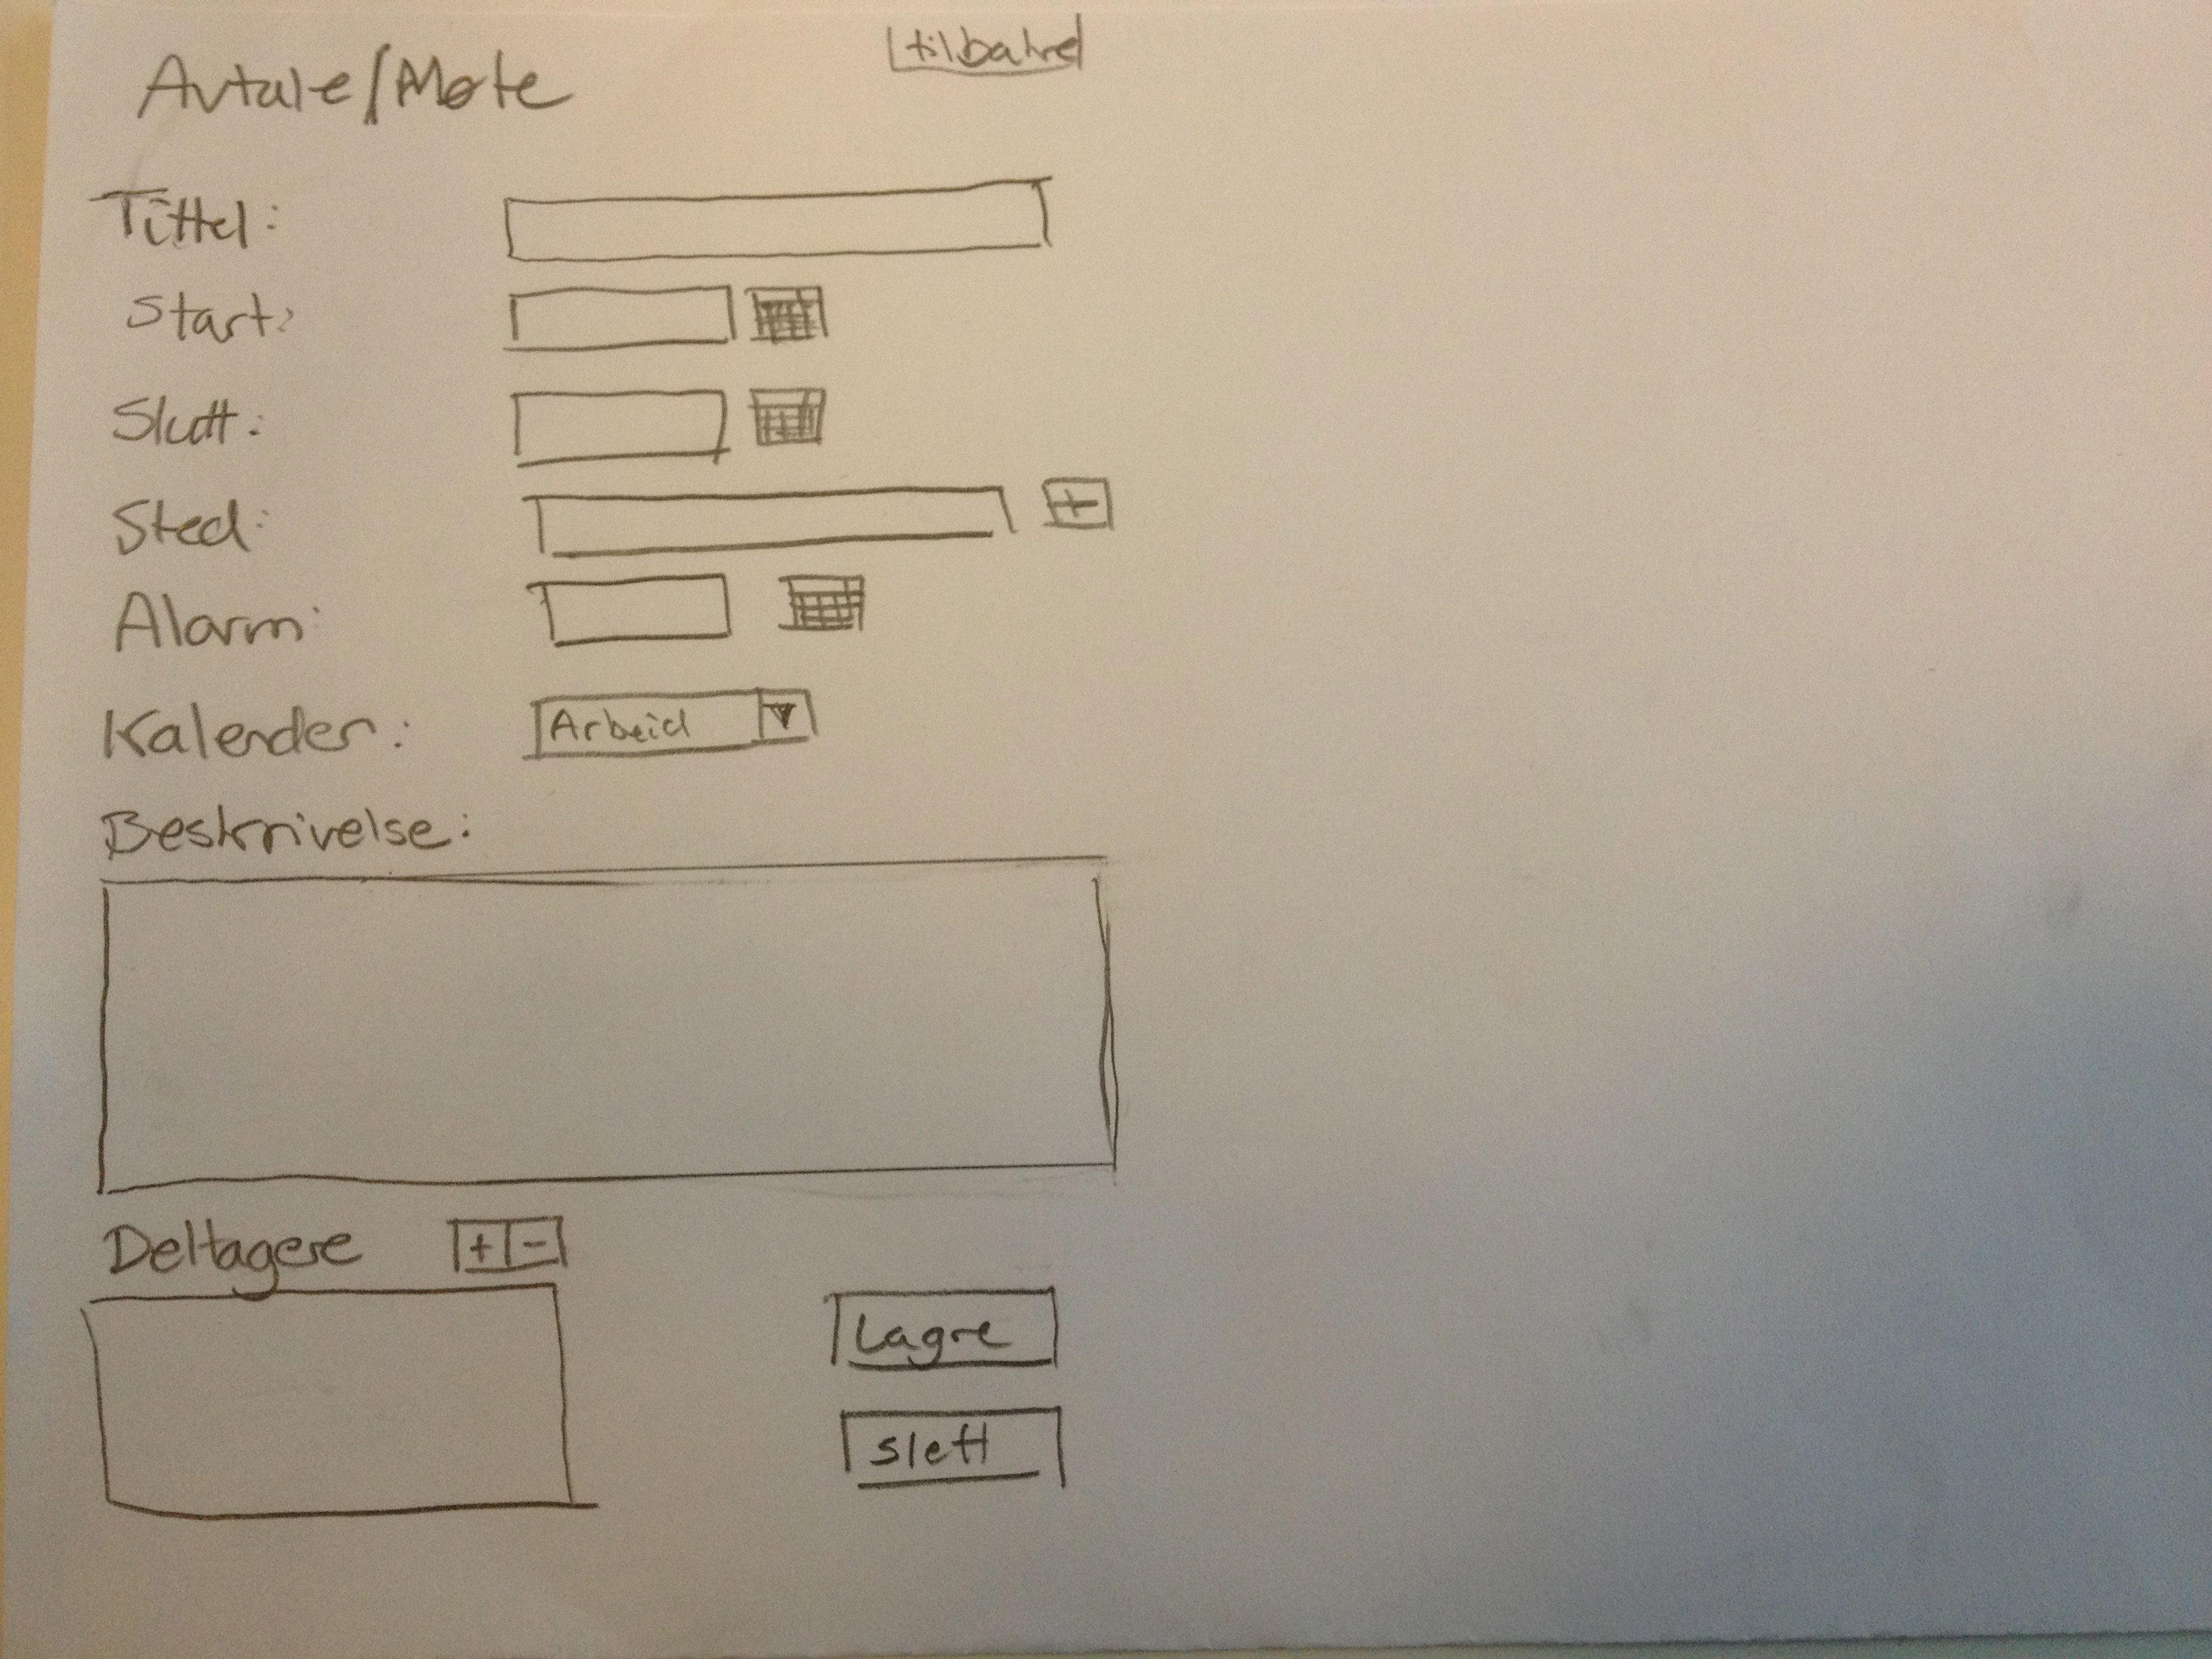 Avtale/Møte
tilbake
Tittel:
Start:
Slutt:
Sted: +
Alarm:
Kalender: Arbeid
Beskrivelse:
Deltagere + -
Lagre
slett